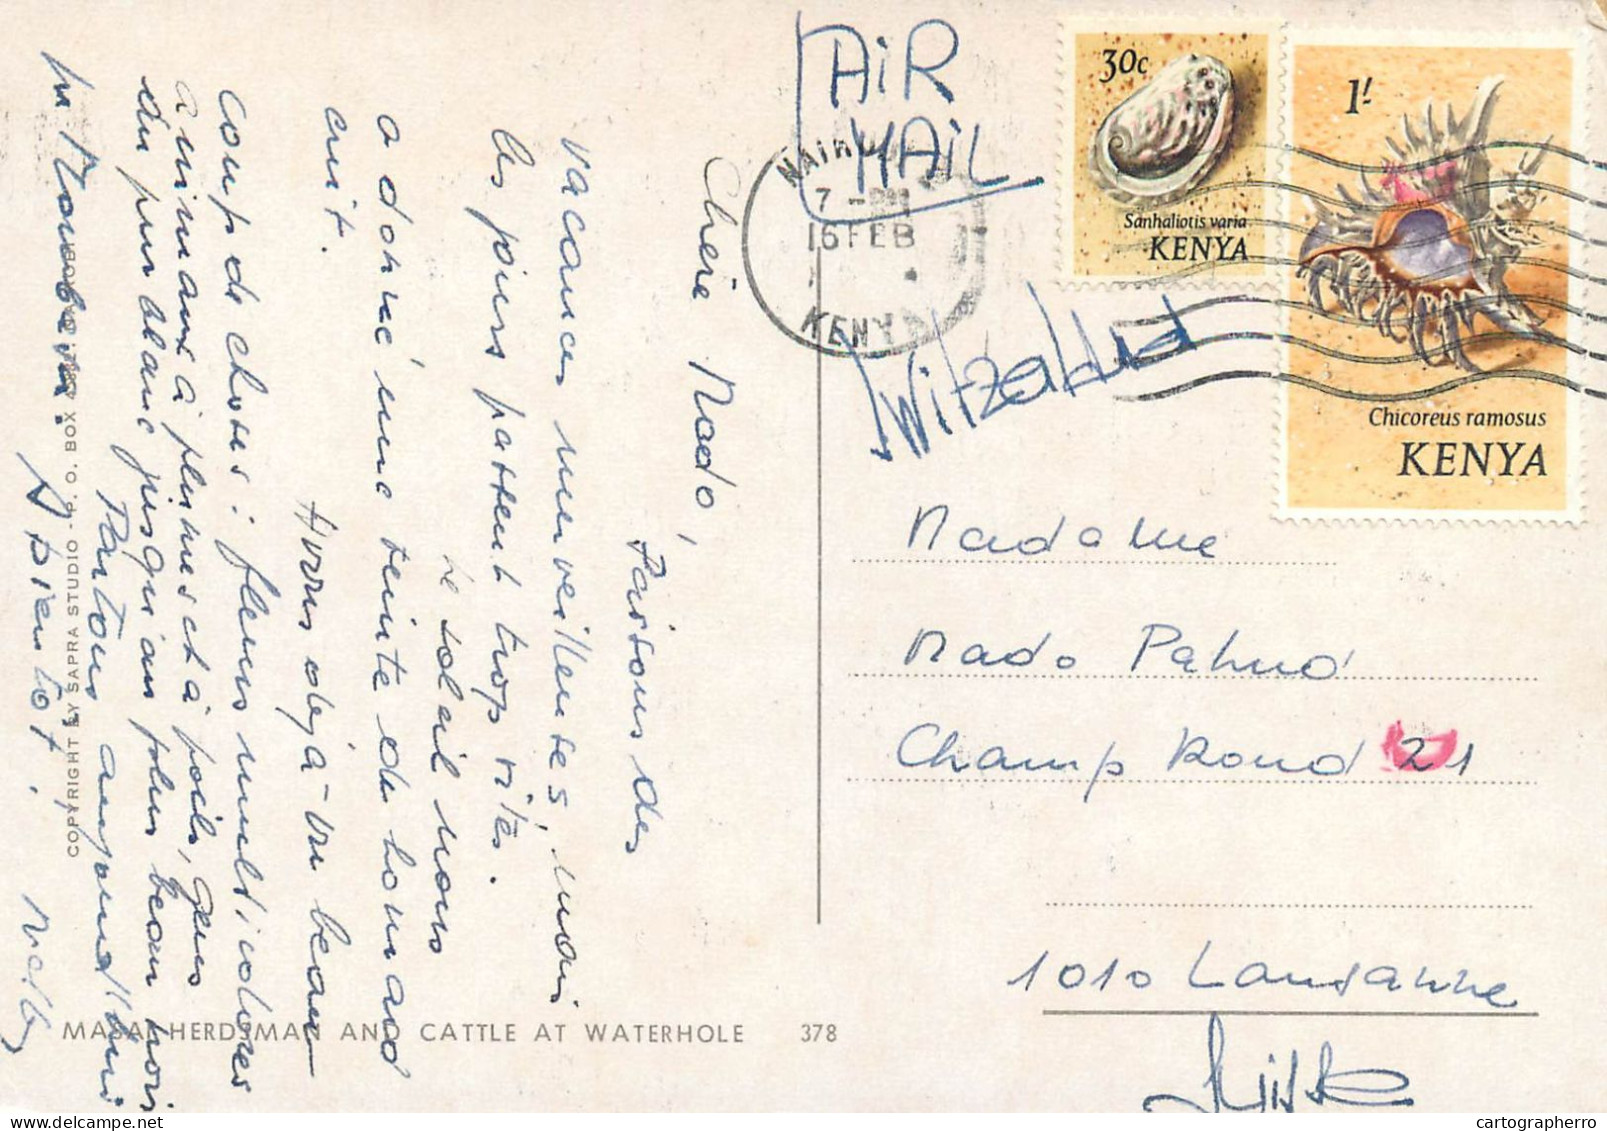 Chère Nado,
Passons des
vacances merveilleuses, mais
les jours passent trop vite.
Le soleil nous
a donné une teinte de homard
cuit.
Avons déjà vu beau-
coup de choses: fleurs multicolores
animaux à plumes et à poils, gens
du pur blanc jusqu'au plus beau noir
Partons aujourd'hui
A bientôt!
Nelly
COPYRIGHT BY SAPRA STUDIO - P. O. BOX
MASAI HERDSMAN AND CATTLE AT WATERHOLE 378
AIR
MAIL
NAIROBI
7 - PM
16 FEB
KENYA
30c
Sanhaliotis varia
KENYA
1/-
Chicoreus ramosus
KENYA
Switzerland
Madame
Nado Pahud
Champ Rond 21
1010 Lausanne
Suisse
cartographerro